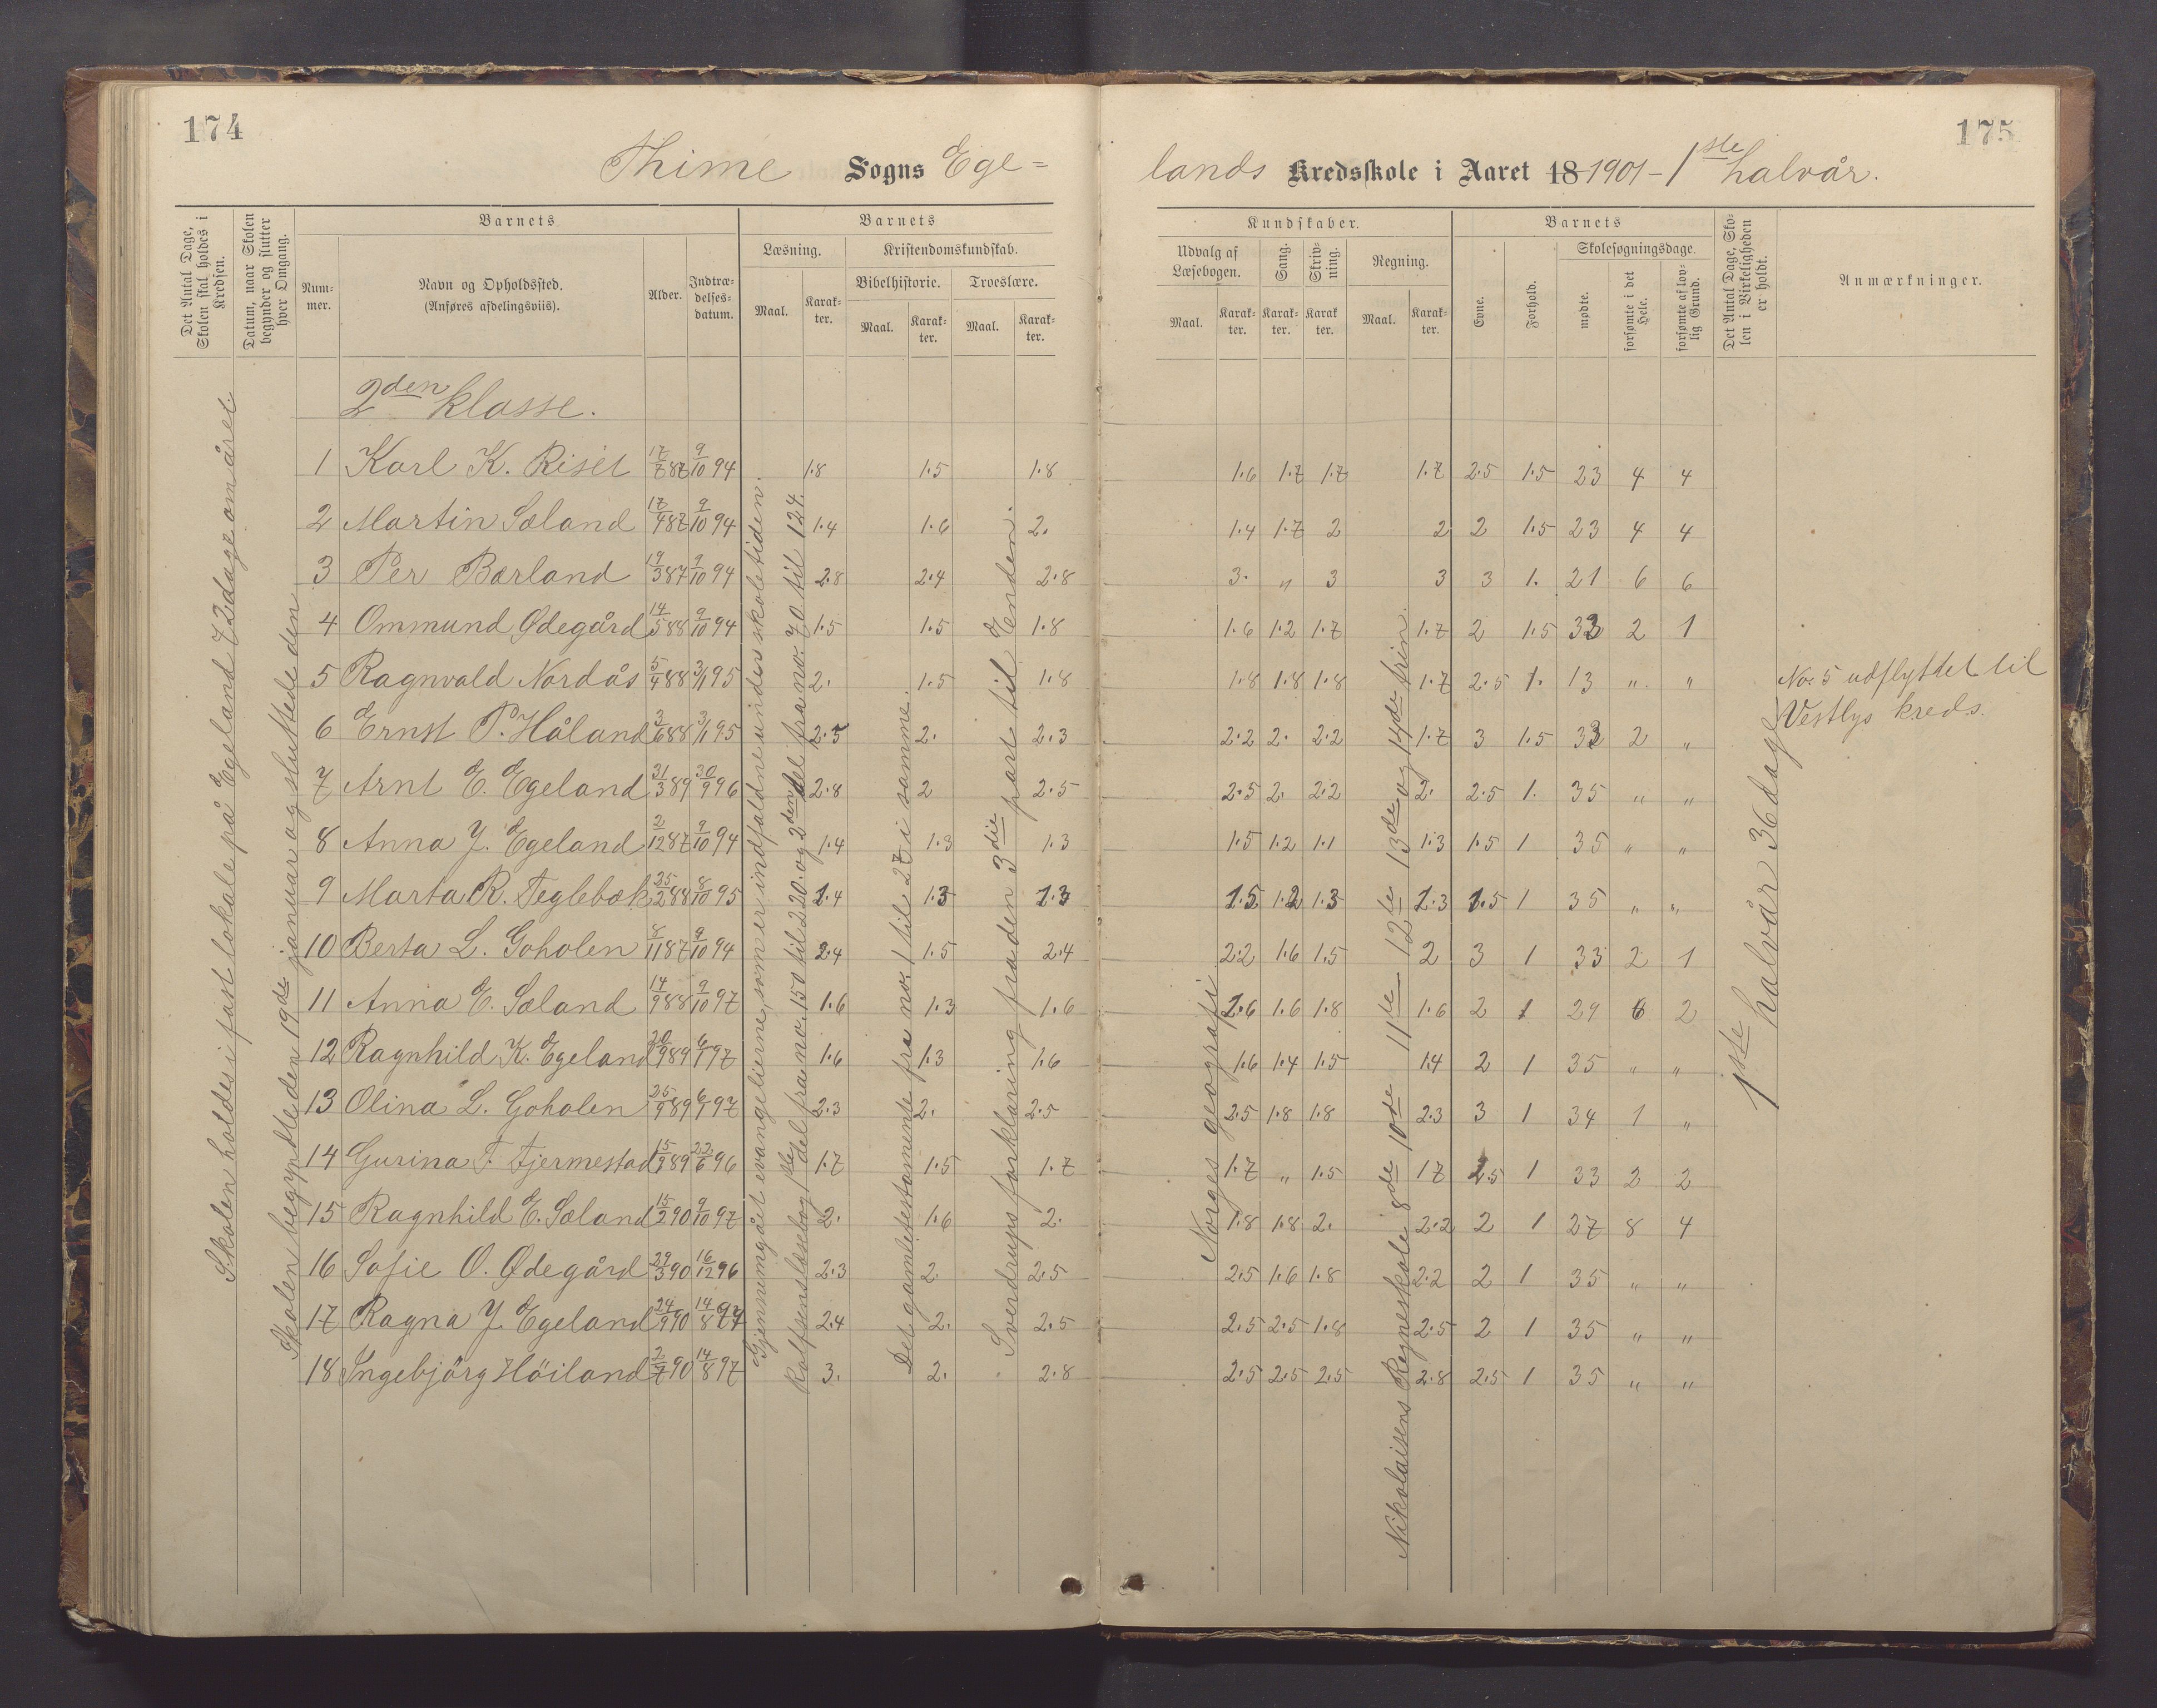 174
Thime Sogns Ege=
Det Antal Dage, Skolen skal holdes i Kredsen.
Datum, naar Skolen begynder og slutter hver Omgang.
Barnets
Nummer.
Navn og Opholdssted.
(Anføres afdelingsviis).
Alder.
Indtrædelses-datum.
Barnets
Læsning.
Maal.
Karakter.
Kristendomskundskab.
Bibelhistorie.
Maal.
Karakter.
Troeslære.
Maal.
Karakter.
Skolen holdes i fast lokale på Egeland 72 dage om året.
Skolen begyndte den 19de januar og sluttede den
Gjennemgået evangelierne, som er indfaldne under skoletiden.
Rolfsens læsebog 1ste del fra no. 150 til 220. og 2den del fra no. 70 til 124.
Det gamle testamente fra no. 1 til 27 i samme.
Sverdrups forklaring fra den 3die part til Enden.
2den klasse.
1 Karl K. Riset 17/7 87 9/10 94 1.8 1.5 1.8
2 Martin Sæland 17/4 87 9/10 94 1.4 1.6 2.
3 Per Bærland 19/3 87 9/10 94 2.8 2.4 2.8
4 Ommund Ødegård 14/5 88 9/10 94 1.5 1.5 1.8
5 Ragnvald Nordås 5/4 88 3/1 95 2. 1.5 1.8
6 Ernst P. Håland 3/6 88 3/1 95 2.5 2. 2.3
7 Arnt E. Egeland 31/3 89 30/9 96 2.8 2 2.5
8 Anna J. Egeland 2/12 87 9/10 94 1.4 1.3 1.3
9 Marta R. Teglebæk 25/2 88 8/10 95 1.4 1.3 1.3
10 Berta L. Goholen 8/11 87 9/10 94 2.4 1.5 2.4
11 Anna E. Sæland 14/9 88 9/10 97 1.6 1.3 1.6
12 Ragnhild K. Egeland 20/9 89 6/1 97 1.6 1.3 1.6
13 Olina L. Goholen 25/9 89 6/1 97 2.3 2. 2.5
14 Gurina T. Fjermestad 15/9 89 22/6 96 1.7 1.5 1.7
15 Ragnhild E. Sæland 15/2 90 9/10 97 2. 1.6 2.
16 Sofie O. Ødegård 29/3 90 16/12 96 2.3 2. 2.5
17 Ragna J. Egeland 24/9 90 14/8 97 2.4 2. 2.5
18 Ingebjörg Höiland 2/7 90 14/8 97 3. 2. 2.8
175
lands Kredsskole i Aaret 18 1901 - 1ste halvår.
Kundskaber.
Udvalg af Læsebogen.
Maal.
Karakter.
Sang.
Karakter.
Skrivning.
Karakter.
Regning.
Maal.
Karakter.
Barnets
Evne.
Forhold.
Skolesøgningsdage.
mødte.
forsømte i det Hele.
forsømte af lovlig Grund.
Det Antal Dage, Skolen i Virkeligheden er holdt.
Anmærkninger.
Norges geografi.
Nikolaisens Regneskole 8de 10de 11te 12te 13de og 14de trin.
1ste halvår 36 dage
1.6 1.7 1.7 1.7 2.5 1.5 23 4 4
1.4 1.7 2 2 2 1.5 23 4 4
3. " 3 3 3 1. 21 6 6
1.6 1.2 1.7 1.7 2 1.5 33 2 1
1.8 1.8 1.8 1.7 2.5 1. 13 " "
No. 5 udflyttet til
Vestlys kreds.
2.2 2. 2.2 1.7 3 1.5 33 2 "
2.5 2. 2.2 2. 2.5 1. 35 " "
1.5 1.2 1.1 1.3 1.5 1 35 " "
1.5 1.2 1.3 1.3 1.5 1 35 " "
2.2 1.6 1.5 2 3 1 33 2 1
1.6 1.6 1.8 1.6 2 1 29 6 2
1.6 1.4 1.5 1.4 2 1 35 " "
2.5 1.8 1.8 2.3 3 1 34 1 "
1.7 " 1.5 1.7 2.5 1 33 2 2
1.8 1.8 2. 2.2 2 1 27 8 4
2.5 1.6 1.8 2.2 2 1 35 " "
2.5 2.5 1.8 2.5 2 1 35 " "
2.5 2.5 2.5 2.8 2.5 1 35 " "